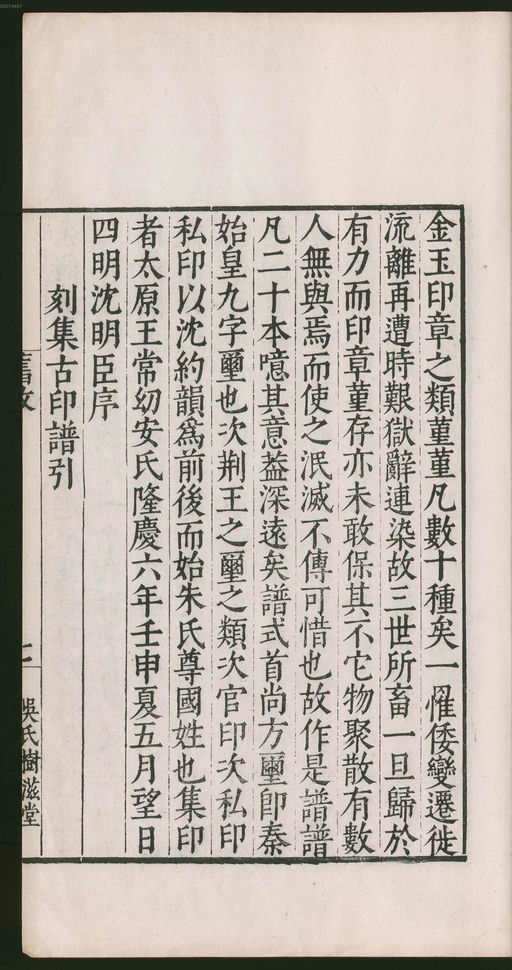 金玉印章之類蓳蓳凡數十種矣一罹倭變遷徙
流離再遭時艱獄辭連染故三世所畜一旦歸於
有力而印章蓳存亦未敢保其不它物聚散有數
人無與焉而使之泯滅不傳可惜也故作是譜譜
凡二十本噫其意葢深遠矣譜式首尚方璽卽秦
始皇九字璽也次荆王之璽之類次官印次私印
私印以沈約韻爲前後而始朱氏尊國姓也集印
者太原王常幼安氏隆慶六年壬申夏五月望日
四明沈明臣序
刻集古印譜引
吳氏樹滋堂
00073487